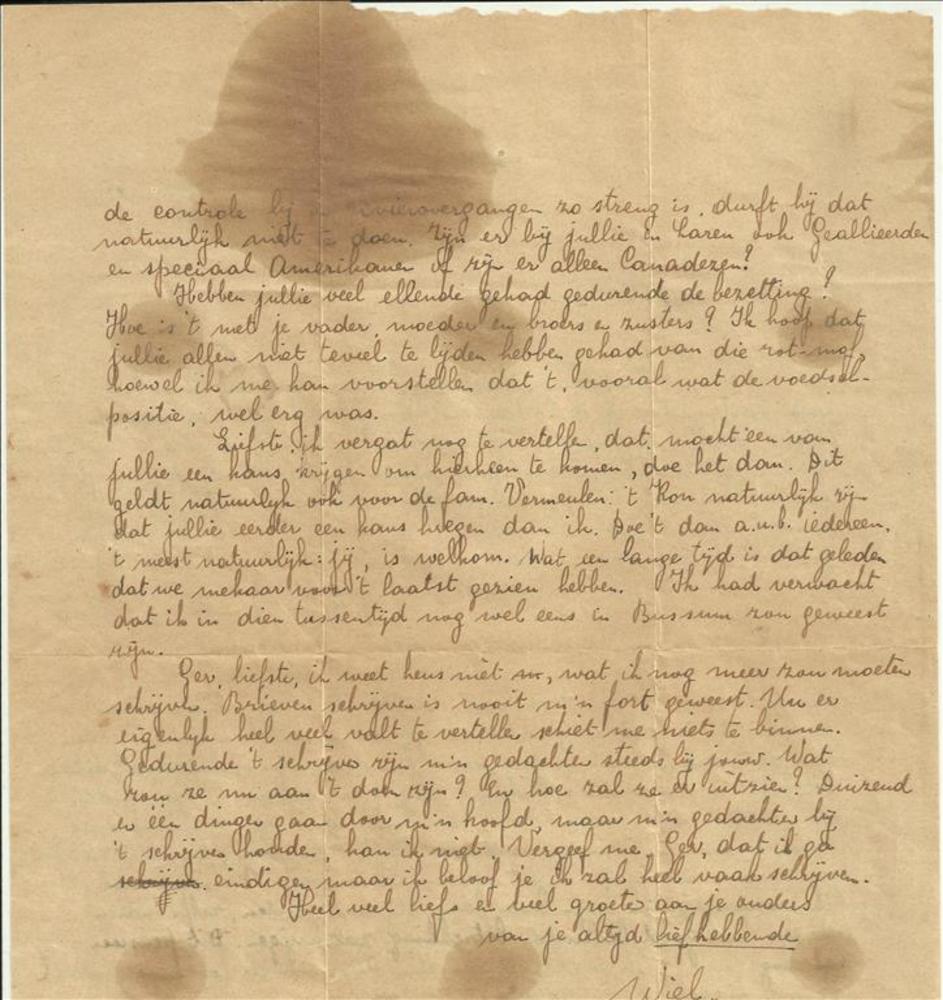 de controle bij rivierovergangen zo streng is, durft hij dat
natuurlijk niet te doen. Zijn er bij jullie in Laren ook Geallieerden
en speciaal Amerikanen of zijn er alleen Canadezen?
Hebben jullie veel ellende gehad gedurende de bezetting?
Hoe is 't met je vader, moeder en broers en zusters? Ik hoop dat
jullie allen niet teveel te lijden hebben gehad van die rot-mof,
hoewel ik me kan voorstellen dat 't, vooral wat de voedsel-
positie, wel erg was.
Liefste, ik vergat nog te vertellen, dat, mocht een van
jullie een kans krijgen om hierheen te komen, doe het dan. Dit
geldt natuurlijk ook voor de fam. Vermeulen: 't Kon natuurlijk zijn
dat jullie eerder een kans kregen dan ik. Doe 't dan a.u.b. iedereen,
't meest natuurlijk: jij, is welkom. Wat een lange tijd is dat geleden
dat we mekaar voor 't laatst gezien hebben. Ik had verwacht
dat ik in dien tussentijd nog wel eens in Bussum zou geweest
zijn.
Ger, liefste, ik weet heus niet , wat ik nog meer zou moeten
schrijven. Brieven schrijven is nooit m'n fort geweest. Nu er
eigenlijk heel veel valt te vertellen schiet me niets te binnen.
Gedurende 't schrijven zijn m'n gedachten steeds bij jouw. Wat
zou ze nu aan 't doen zijn? En hoe zal ze er uitzien? Duizend
en één dingen gaan door m'n hoofd, maar m'n gedachten bij
't schrijven houden, kan ik niet. Vergeef me, Ger, dat ik ga
schrijven. eindigen, maar ik beloof je ik zal heel vaak schrijven.
Heel veel liefs en veel groeten aan je ouders
van je altijd liefhebbende
Wiel.